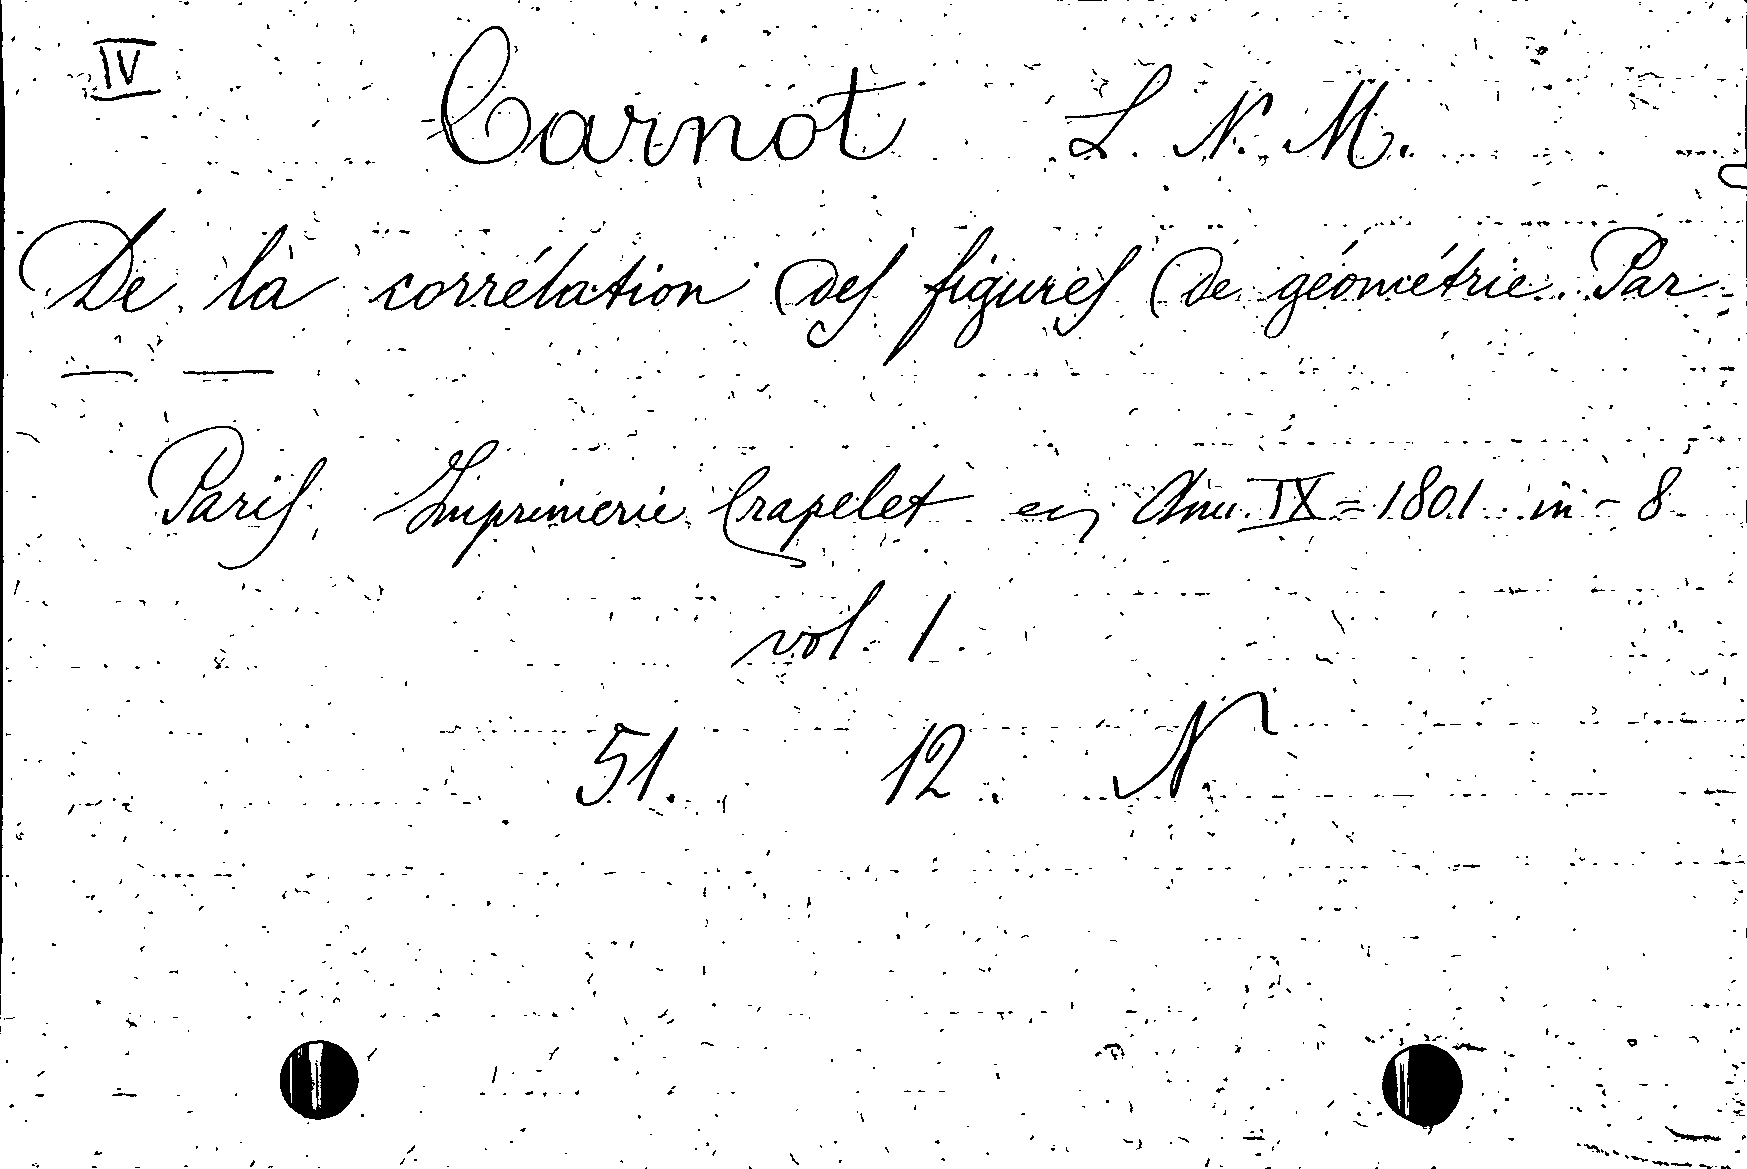 IV
Carnot L. N. M.
De la corrélation des figures de géométrie. Par
— —
Paris, Imprimerie Crapelet en Ann. IX = 1801 in - 8
vol. 1.
51. 12. N